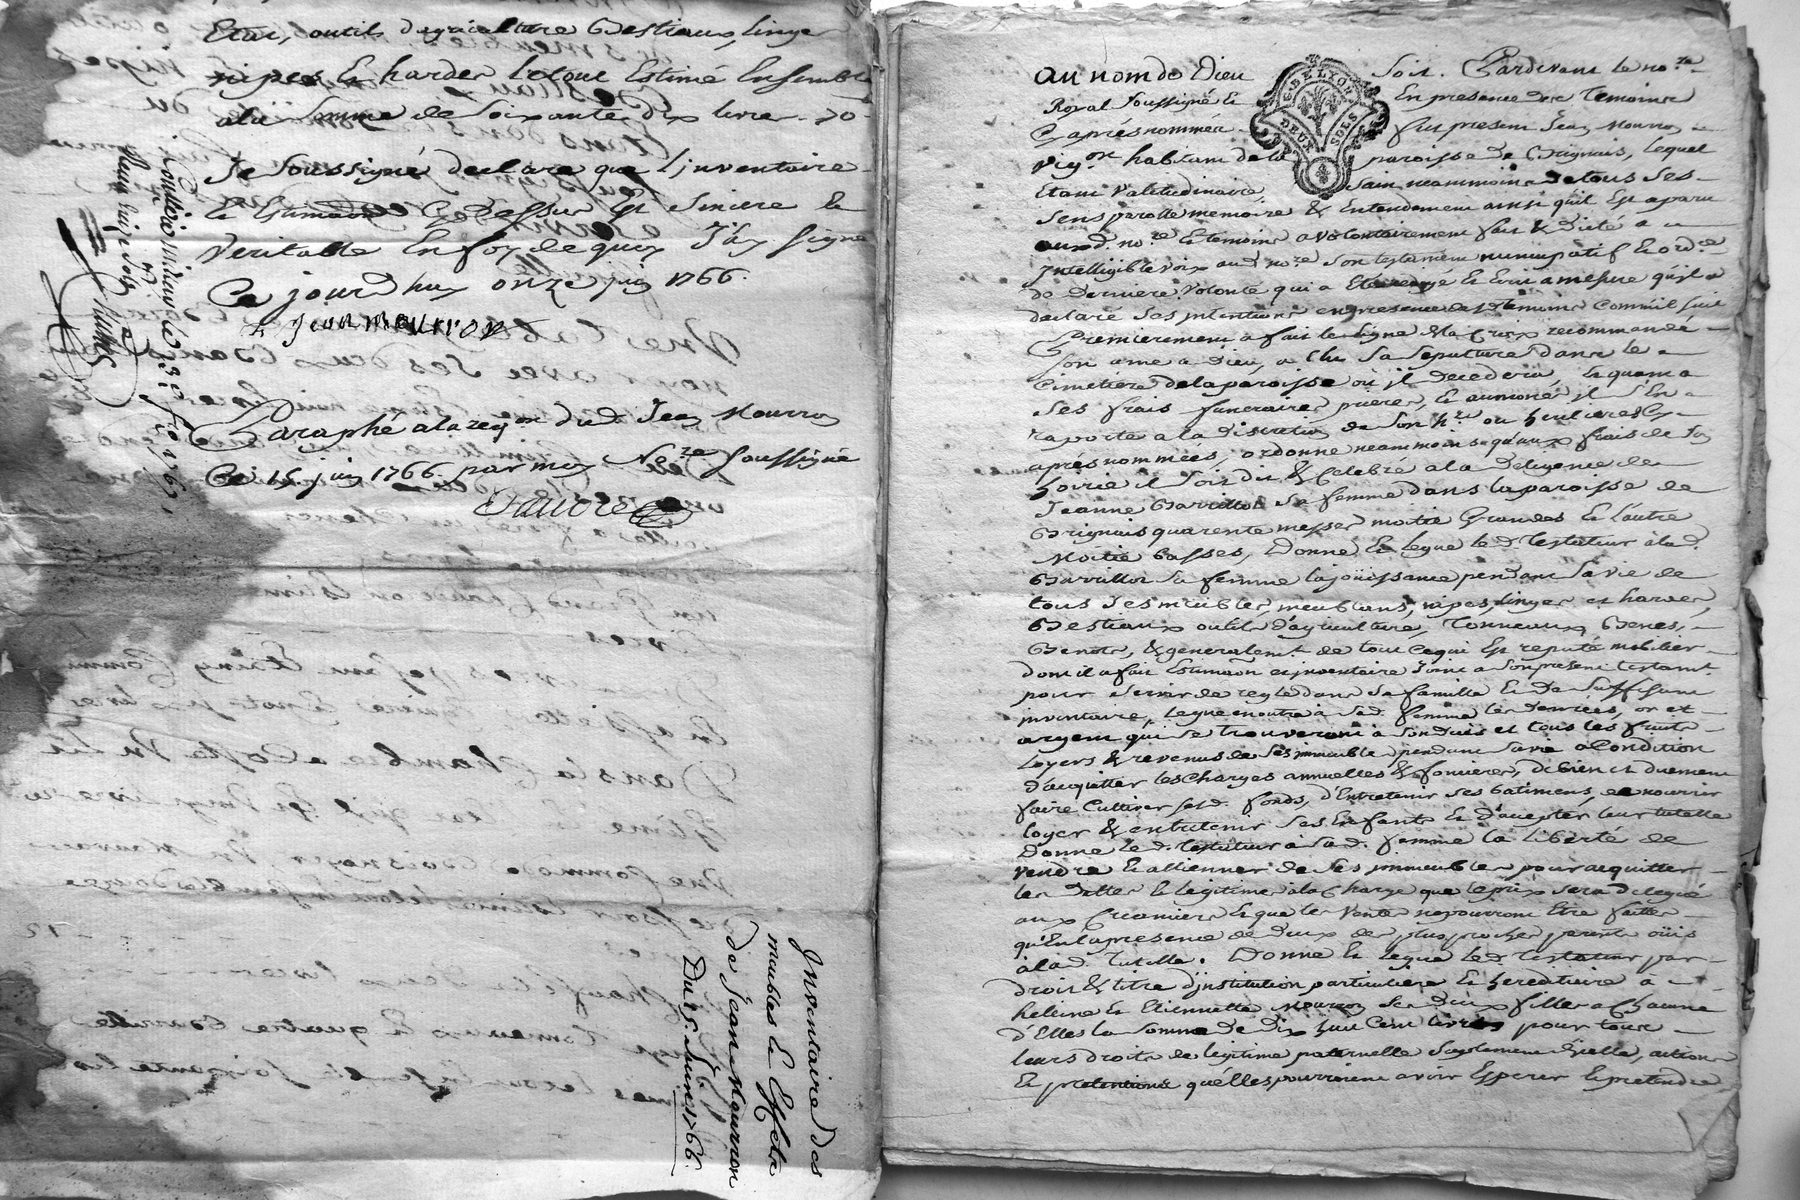 Etai, outils d'agriculture Bestiaux, linges
nipes & hardes le tout Estimé Ensemble
ala somme de soixante dix livres 70
Je soussigné declare que l'inventaire
& Estimaon Cy dessus Est sincere &
veritable En foy de quoy J'ay signé
Ce jourd'huy onze juin 1766.
Jean mourron
Paraphé alareqon dud Jean Mourron
Ce 15. juin 1766. par moy Nore soussigné
Inventaire des
meubles & Effets
de Jean Mourron
Du 15. Juin 1766.
au nom de Dieu soit. Pardevant le nore
Royal soussigné & En presence des Temoins
Cy aprés nommés fut present Jean Mourron
vigon habitant de la paroisse de Brignais, lequel
Etant valetudinaire sain neanmoins de tous ses
sens parolle memoire & Entendement ainsi qu'il Est aparu
aud. nore & temoins a volontairement fait & dicté a
intelligible voix aud nore son testament nuncupatif & ordce
de derniere volonté qui a Eté redigé & Ecrit a mesure qu'il a
declaré ses intentions en presence des temoins Comme il suit
Premierement a fait le signe de la Croix recommandé
son ame a Dieu, a Elu sa sepulture dans le
Cimetiere de la paroisse où il decedera, & quant a
ses frais funeraires prieres, & aumones il s'en
raporte a la discretion de son her. ou heritieres Cy
aprés nommées, ordonne neanmoins qu'aux frais de son
hoirie il soit dit & Celebré a la diligence de
Jeanne Barillot sa femme dans la paroisse de
Brignais quarante messes moitié Grandes & l'autre
moitié basses, Donne & legue led. Testateur a lad.
Barillot sa femme la joüissance pendant sa vie de
tous ses meubles meublans, nipes, linges et hardes,
Bestiaux outils d'agriculture, Tonneaux Benes,
Benots, & generalemt. de tout Ce qui Est reputé mobilier
dont il a fait Estimaon et inventaire joint a son present testamt.
pour servir de regle dans sa famille & de suffisant
inventaire, legue en outre à sad. femme les denrées, or et
argent qui se trouveront a son deces et tous les fruits
loyers & revenus de ses immeubles pendant sa vie a Condition
d'acquitter les Charges annuelles & foncieres, de bien et duement
faire Cultiver sesd. fonds, d'Entretenir ses batimens, de nourrir
loger & entretenir ses Enfants & d'accepter leur tutelle
Donne led. testateur à sad. femme la liberté de
vendre & alliener de ses immeubles pour acquitter
les dettes & legitimes à la Charge que le prix sera delegué
aux Creanciers & que les ventes ne pourront Etre faittes
qu'En la presence de deux des plus proches parents oüis
à lad. tutelle. Donne & legue led. Testateur par
droit & titre d'institution particuliere & hereditaire à
helene & Etiennette Mourron ses deux filles a Chacune
d'Elles la somme de dix huit Cent livres pour tous
leurs droits de legitime paternelle suplement d'icelle, actions
& pretentions qu'elles pourroient avoir Esperer & pretendre
G. DE LYON
DEUX SOLS